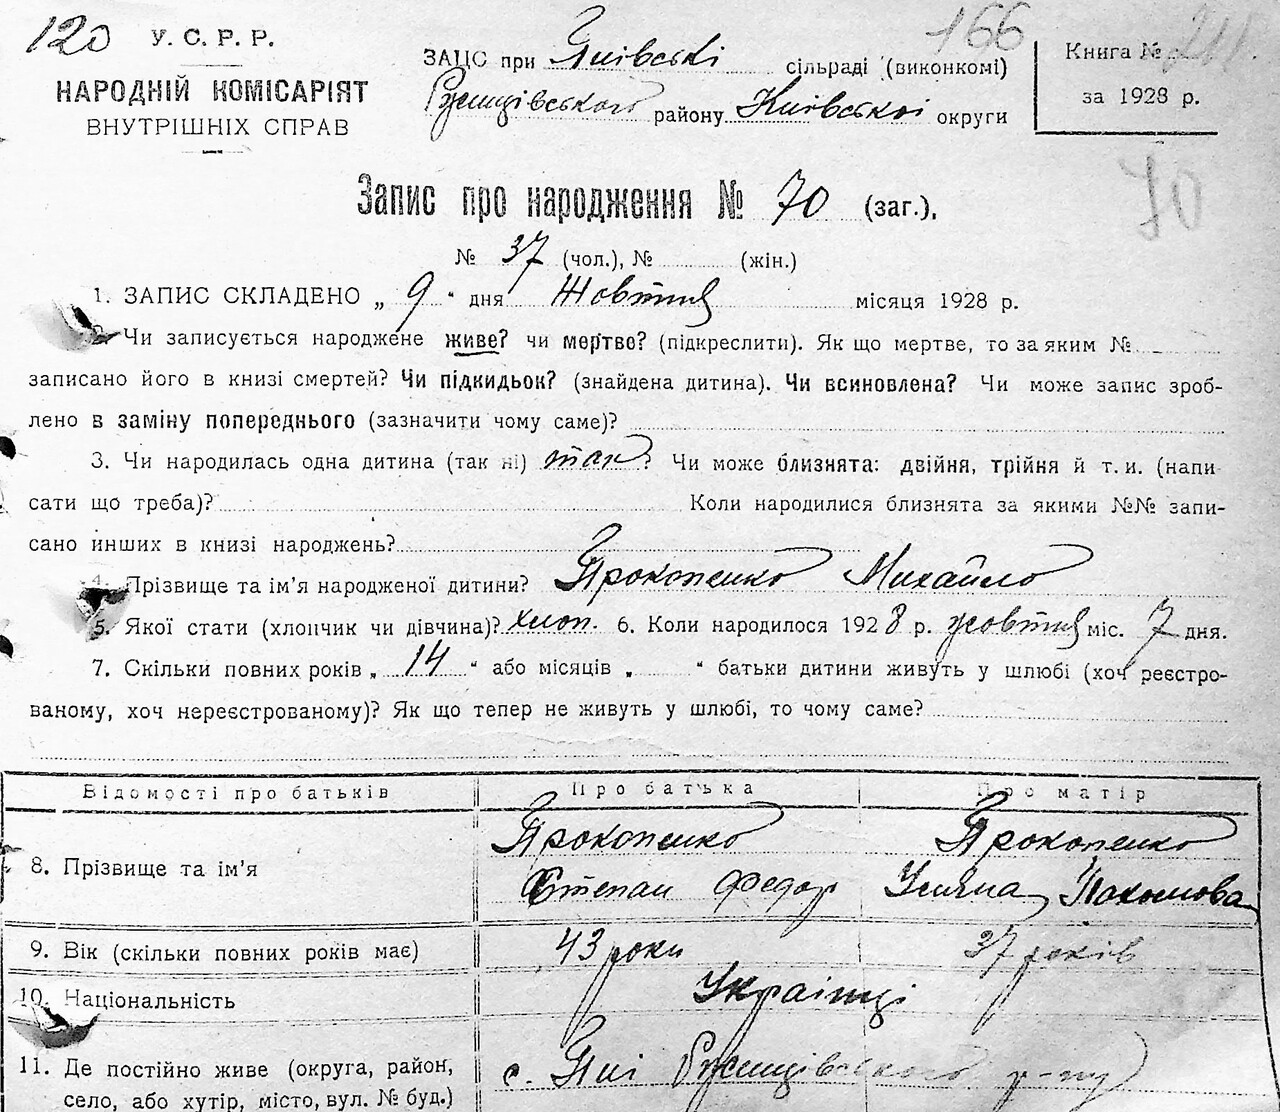 120
У. С. Р. Р.
НАРОДНІЙ КОМІСАРІЯТ
ВНУТРІШНІХ СПРАВ
166
ЗАЦС при Япівські сільраді (виконкомі)
Ржищівського району Київської округи
Книга №
за 1928 р.
70
Запис про народження № 70 (заг.),
№ 37 (чол.), № (жін.)
1. ЗАПИС СКЛАДЕНО „ 9 " дня Жовтня місяця 1928 р.
2. Чи записується народжене живе? чи мертве? (підкреслити). Як що мертве, то за яким №
записано його в книзі смертей? Чи підкидьок? (знайдена дитина). Чи всиновлена? Чи може запис зроб-
лено в заміну попереднього (зазначити чому саме)?
3. Чи народилась одна дитина (так ні) так? Чи може близнята: двійня, трійня й т. и. (напи
сати що треба)? Коли народилися близнята за якими №№ запи-
сано инших в книзі народжень?
4. Прізвище та ім'я народженої дитини? Прокопенко Михайло
5. Якої стати (хлопчик чи дівчина)? хлоп. 6. Коли народилося 1928 р. жовтня міс. 7 дня.
7. Скільки повних років „ 14 " або місяців „ " батьки дитини живуть у шлюбі (хоч реєстро-
ваному, хоч нереєстрованому)? Як що тепер не живуть у шлюбі, то чому саме?
Відомості про батьків Про батька Про матір
8. Прізвище та ім'я Прокопенко Степан Федор Прокопенко Уляна Пахомова
9. Вік (скільки повних років має) 43 роки 37 років
10. Національність Українці
11. Де постійно живе (округа, район, с. Ржищівського р-ну
село, або хутір, місто, вул. № буд.)